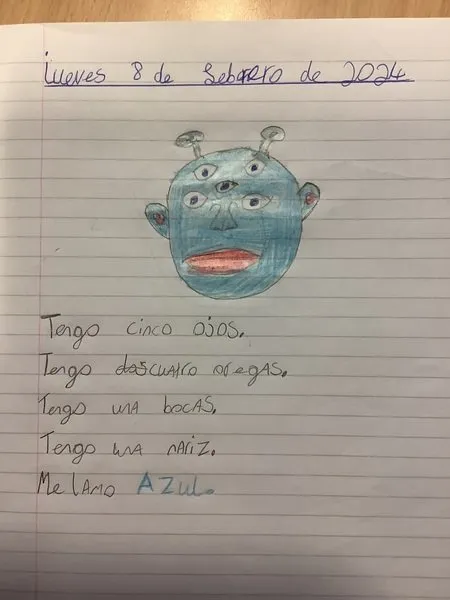 Jueves 8 de Febrero de 2024
Tengo cinco ojos.
Tengo dos cuatro oregas.
Tengo una bocas.
Tengo una nariz.
Me lamo AZUL.